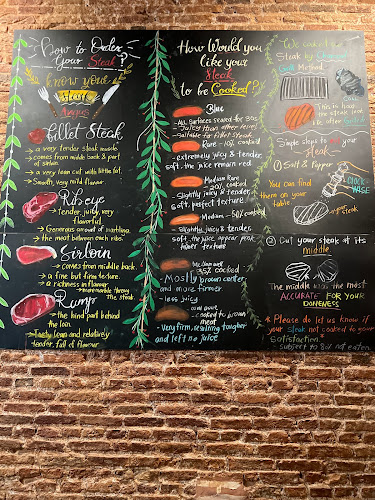 How to Order
Your Steak?
know your
Angus
Fillet Steak
→ a very tender steak muscle
→ comes from middle back & part
of sirloin.
→ a very lean cut with little fat.
→ Smooth, very mild flavour
Ribeye
→ Tender, juicy, very
flavorful.
→ Generous amount of marbling.
→ the most between each ribs.
Sirloin
→ comes from middle back.
→ a fine but firm texture.
→ a richness in flavor
→ more marble throw
the steak.
Rump
→ the hind part behind
the loin.
→ Tasty, lean and relatively
tender, full of flavour
How Would you
like your
Steak
to be Cooked?
Blue
- All surfaces seared for 30s
- Juicy than other level
- Suitable for fillet steak
Rare - 10% cooked
- extremely juicy & tender
soft. the juice remain red
Medium Rare
20% cooked
- Slightly juicy & tender,
soft, perfect texture.
Medium - 50% cooked
- Slightly juicy & tender
soft, the juice appear pink
75% cooked
- Mostly brown center
and more firmer
- less juicy
- cooked to brown
meat
- Very firm, resulting tougher
and left no juice
We
Steak by
Grill Method
This is how
the steak look
Simple steps to
Steak
① Salt & Pepper
You can find
them on your
table.
CLOCK
WISE
your steak
② Cut your steak at its
middle.
The middle was the most
ACCURATE FOR YOUR
DONENESS
* Please do let us know if
your steak not cooked to your
satisfaction.
- subject to 80% not eaten